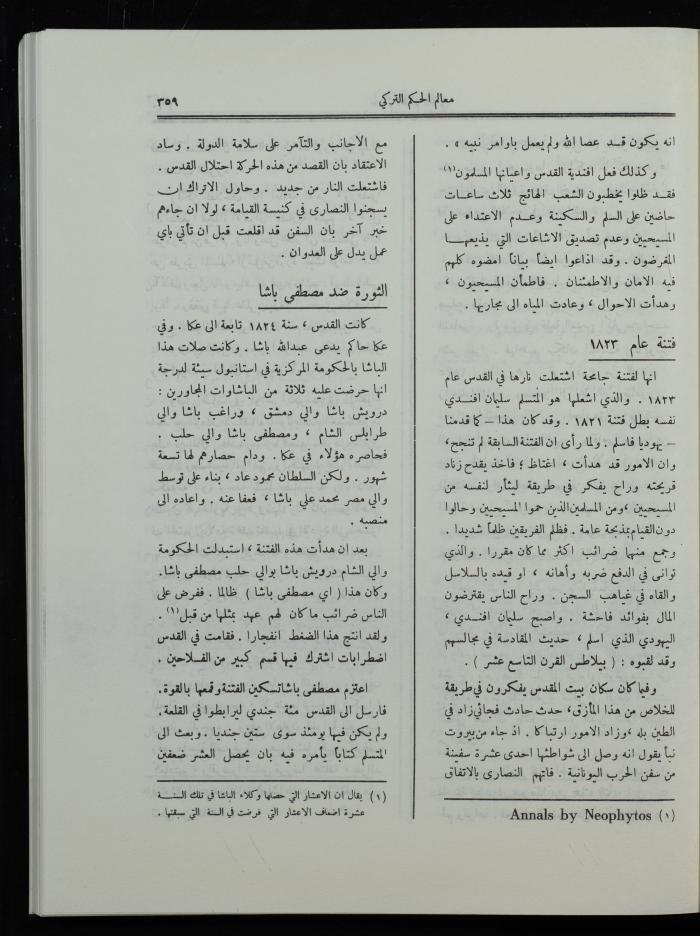 معالم الحكم التركي
٣٥٩
انه يكون قد عصا الله ولم يعمل باوامر نبيه » .
وكذلك فعل افندية القدس واعيانها المسلمون(١)
فقد ظلوا يخطبون الشعب الهائج ثلاث ساعات
حاضين على السلم والسكينة وعدم الاعتداء على
المسيحيين وعدم تصديق الاشاعات التي يذيعها
المغرضون . وقد اذاعوا ايضاً بياناً امضوه كلهم
فيه الامان والاطمئنان . فاطمأن المسيحيون ،
وهدأت الاحوال ، وعادت المياه الى مجاريها .
فتنة عام ١٨٢٣
انها لفتنة جامحة اشتعلت نارها في القدس عام
١٨٢٣ . والذي اشعلها هو المتسلم سليمان افندي
نفسه بطل فتنة ١٨٢١ . وقد كان هذا – كما قدمنا
– يهوديا فاسلم . ولما رأى ان الفتنة السابقة لم تنجح،
وان الامور قد هدأت ، اغتاظ ؛ فاخذ يقدح زناد
قريحته وراح يفكر في طريقة ليثأر لنفسه من
المسيحيين ،ومن المسلمين الذين حموا المسيحيين وحالوا
دون القيام بمذبحة عامة . فظلم الفريقين ظلماً شديدا .
وجمع منها ضرائب اكثر مما كان مقررا . والذي
توانى في الدفع ضربه وأهانه ، او قيده بالسلاسل
والقاه في غياهب السجن . وراح الناس يقترضون
المال بفوائد فاحشة . واصبح سليمان افندي ،
اليهودي الذي اسلم ، حديث المقادسة في مجالسهم
وقد لقبوه : ( بيلاطس القرن التاسع عشر ) .
وفيما كان سكان بيت المقدس يفكرون في طريقة
للخلاص من هذا المأزق، حدث حادث فجائي زاد في
الطين بله ،وزاد الامور ارتباكا . اذ جاء من بيروت
نبأ يقول انه وصل الى شواطئها احدى عشرة سفينة
من سفن الحرب اليونانية . فاتهم النصارى بالاتفاق
(١) Annals by Neophytos
مع الاجانب والتآمر على سلامة الدولة . وساد
الاعتقاد بان القصد من هذه الحركة احتلال القدس .
فاشتعلت النار من جديد . وحاول الاتراك ان
يسجنوا النصارى في كنيسة القيامة ، لولا ان جاءهم
خبر آخر بان السفن قد اقلعت قبل ان تأتي باي
عمل يدل على العدوان .
الثورة ضد مصطفى باشا
كانت القدس ، سنة ١٨٢٤ تابعة الى عكا . وفي
عكا حاكم يدعى عبدالله باشا . وكانت صلات هذا
الباشا بالحكومة المركزية في استانبول سيئة لدرجة
انها حرضت عليه ثلاثة من الباشاوات المجاورين :
درويش باشا والي دمشق ، وراغب باشا والي
طرابلس الشام ، ومصطفى باشا والي حلب .
فحاصره هؤلاء في عكا . ودام حصارهم لها تسعة
شهور . ولكن السلطان محمود عاد ، بناء على توسط
والي مصر محمد علي باشا ، فعفا عنه . واعاده الى
منصبه .
بعد ان هدأت هذه الفتنة ، استبدلت الحكومة
والي الشام درويش باشا بوالي حلب مصطفى باشا.
وكان هذا ( اي مصطفى باشا ) ظالما . ففرض على
الناس ضرائب ما كان لهم عهد بمثلها من قبل(١) .
ولقد انتج هذا الضغط انفجارا . فقامت في القدس
اضطرابات اشترك فيها قسم كبير من الفلاحين .
اعتزم مصطفى باشا تسكين الفتنة وقمعها بالقوة.
فارسل الى القدس مئة جندي ليرابطوا في القلعة.
ولم يكن فيها يومئذ سوى ستين جنديا . وبعث الى
المتسلم كتاباً يأمره فيه بان يحصل العشر ضعفين
(١) يقال ان الاعشار التي حصلها وكلاء الباشا في تلك السنة
عشرة اضعاف الاعشار التي فرضت في السنة التي سبقتها .